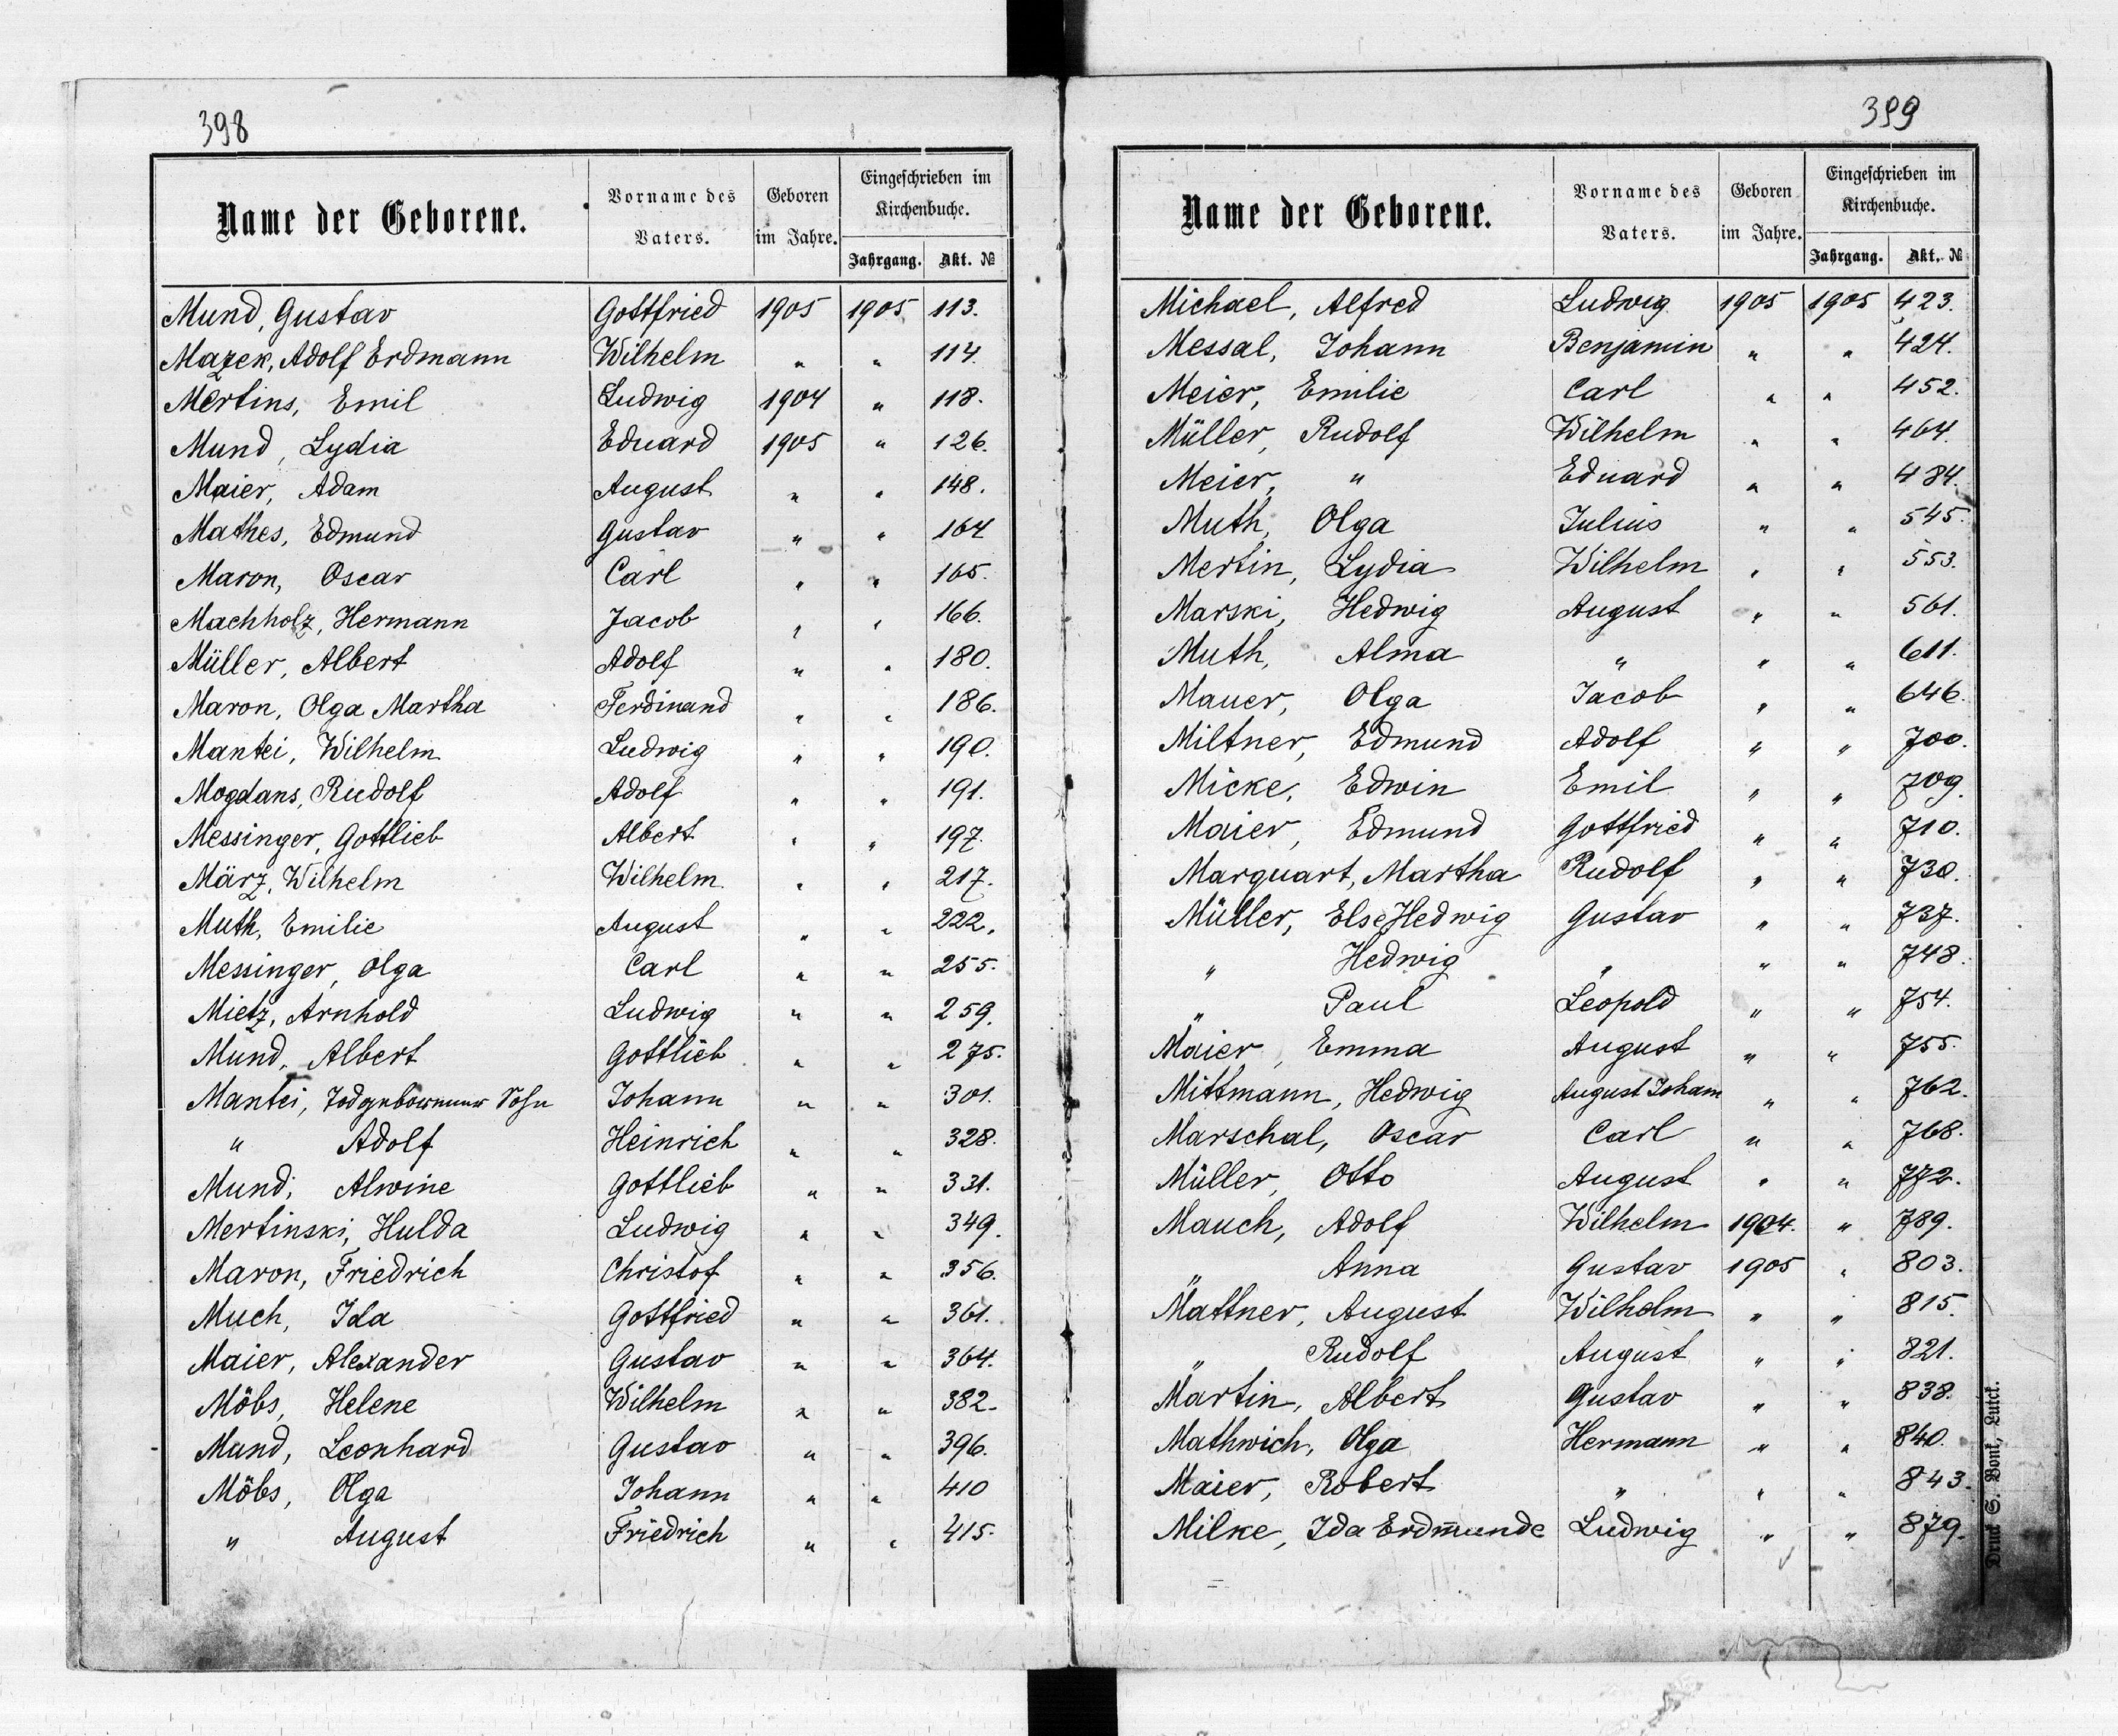 398
Name der Geborene. Vorname des Vaters. Geboren im Jahre. Eingeschrieben im Kirchenbuche. Jahrgang. Akt. №
Mund, Gustav Gottfried 1905 1905 113.
Mazek, Adolf Erdmann Wilhelm " " 114.
Mertins, Emil Ludwig 1904 " 118.
Mund, Lydia Eduard 1905 " 126.
Maier, Adam August " " 148.
Mathes, Edmund Gustav " " 164
Maron, Oscar Carl " " 165.
Machholz, Hermann Jacob " " 166.
Müller, Albert Adolf " " 180.
Maron, Olga Martha Ferdinand " " 186.
Mantei, Wilhelm Ludwig " " 190.
Mogdans, Rudolf Adolf " " 191.
Messinger, Gottlieb Albert " " 197.
März, Wilhelm Wilhelm " " 217.
Muth, Emilie August " " 222.
Messinger, Olga Carl " " 255.
Mietz, Arnhold Ludwig " " 259.
Mund, Albert Gottlieb " " 275.
Mantei, Todgeborener Sohn Johann " " 301.
" Adolf Heinrich " " 328.
Mund, Alwine Gottlieb " " 331.
Mertinski, Hulda Ludwig " " 349.
Maron, Friedrich Christof " " 356.
Much, Ida Gottfried " " 361.
Maier, Alexander Gustav " " 364.
Möbs, Helene Wilhelm " " 382.
Mund, Leonhard Gustav " " 396.
Möbs, Olga Johann " " 410
" August Friedrich " " 415.
399
Name der Geborene. Vorname des Vaters. Geboren im Jahre. Eingeschrieben im Kirchenbuche. Jahrgang. Akt. №
Michael, Alfred Ludwig 1905 1905 423.
Messal, Johann Benjamin " " 424.
Meier, Emilie Carl " " 452.
Müller, Rudolf Wilhelm " " 464.
Meier, " Eduard " " 484.
Muth, Olga Julius " " 545.
Mertin, Lydia Wilhelm " " 553.
Marski, Hedwig August " " 561.
Muth, Alma " " " 611.
Mauer, Olga Jacob " " 646.
Miltner, Edmund Adolf " " 700.
Micke, Edwin Emil " " 709.
Maier, Edmund Gottfried " " 710.
Marquart, Martha Rudolf " " 730.
Müller, Else Hedwig Gustav " " 737.
" Hedwig " " " 748.
" Paul Leopold " " 754.
Maier, Emma August " " 755.
Mittmann, Hedwig August Johann " " 762.
Marschal, Oscar Carl " " 768.
Müller, Otto August " " 772.
Mauch, Adolf Wilhelm 1904. " 789.
" Anna Gustav 1905 " 803.
Mattner, August Wilhelm " " 815.
" Rudolf August " " 821.
Martin, Albert Gustav " " 838.
Mathwich, Olga Hermann " " 840.
Maier, Robert " " " 843.
Milke, Ida Erdmunde Ludwig " " 879.
Druck S. Bont, Luck.